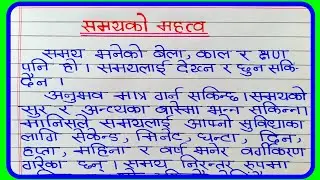 समयको महत्व
समय भनेको बेला, काल र क्षण
पनि हो । समयलाई देख्न र छुन सकि
दैन ।
अनुभव मात्र गर्न सकिन्छ । समयको
सुरु र अन्त्यका बारेमा भन्न सकिन्न
मानिसले समयलाई आफ्नो सुविधाका
लागि सेकेन्ड, मिनेट, घन्टा, दिन,
हप्ता, महिना र वर्ष भनेर वर्गीकरण
गरेका छन् । समय निरन्तर रुपमा